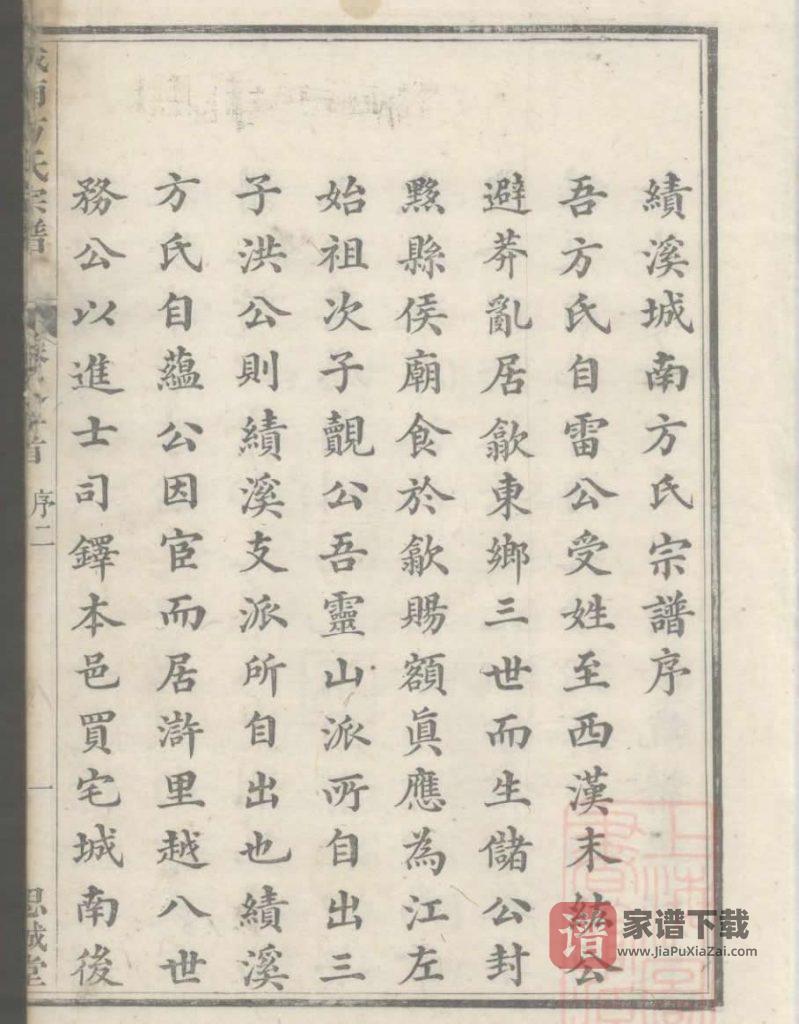 績溪城南方氏宗譜序
吾方氏自雷公受姓至西漢末紘公
避莽亂居歙東鄉三世而生儲公封
黟縣侯廟食於歙賜額眞應為江左
始祖次子觀公吾靈山派所自出三
子洪公則績溪支派所自出也績溪
方氏自蘊公因宦而居滸里越八世
務公以進士司鐸本邑買宅城南後
城南方氏宗譜
卷之首
序二
一
思誠堂
家谱下载
www.JiaPuXiaZai.com
谱